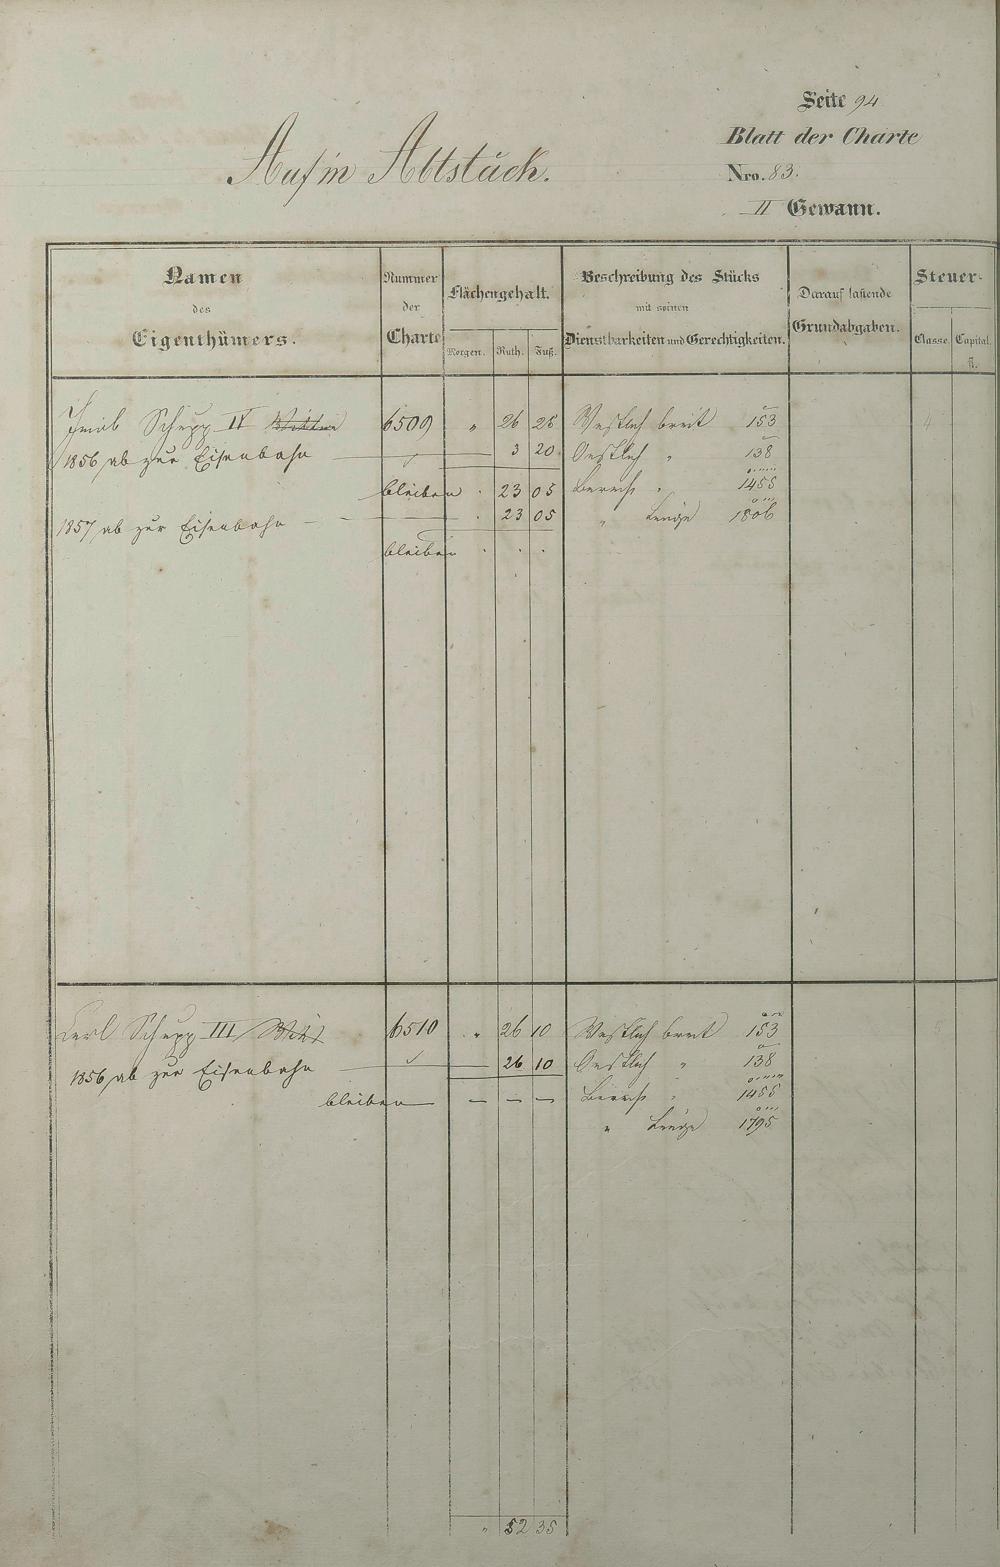 Seite 94
Blatt der Charte
Nro. 83.
II Gewann.
Auf'm Altstück.
Namen des Eigenthümers.
Nummer der Charte
Flächengehalt.
Morgen. Ruth. Fuß.
Beschreibung des Stücks mit seinen Dienstbarkeiten und Gerechtigkeiten.
Darauf lastende Grundabgaben.
Steuer-
Classe. Capital. fl.
Schupp IV 6509 " 26 25 Westlich breit 153
1856 ab zur Eisenbahn 3 20 Oestlich " 138
bleiben . 23 05 " 1455
1857 ab zur Eisenbahn . 23 05 " Länge 1806
bleiben . . .
Carl Schupp III 6510 " 26 10 Westlich breit 153
1856 ab zur Eisenbahn 26 10 Oestlich " 138
bleiben — — — " 1455
" Länge 1795
" 52 35